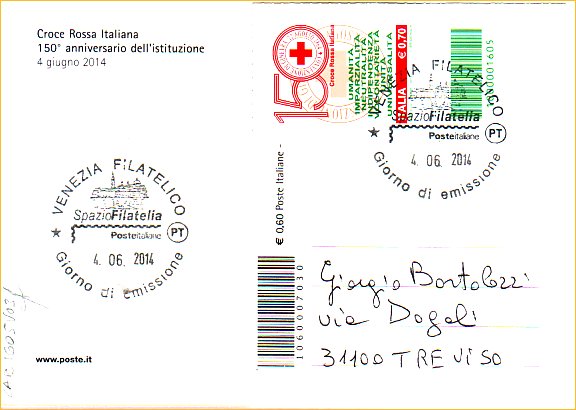 Croce Rossa Italiana
150° anniversario dell'istituzione
4 giugno 2014
150
Croce Rossa Italiana
UMANITÀ
IMPARZIALITÀ
NEUTRALITÀ
INDIPENDENZA
VOLONTARIETÀ
UNITÀ
UNIVERSALITÀ
ITALIA € 0,70
000001605
VENEZIA FILATELICO
SpazioFilatelia
Posteitaliane PT
4. 06. 2014
Giorno di emissione
VENEZIA FILATELICO
SpazioFilatelia
Posteitaliane PT
4. 06. 2014
Giorno di emissione
€ 0,60 Poste Italiane -
1060007030
Giorgio Bortolozzi
via Dogali
31100 TREVISO
www.poste.it